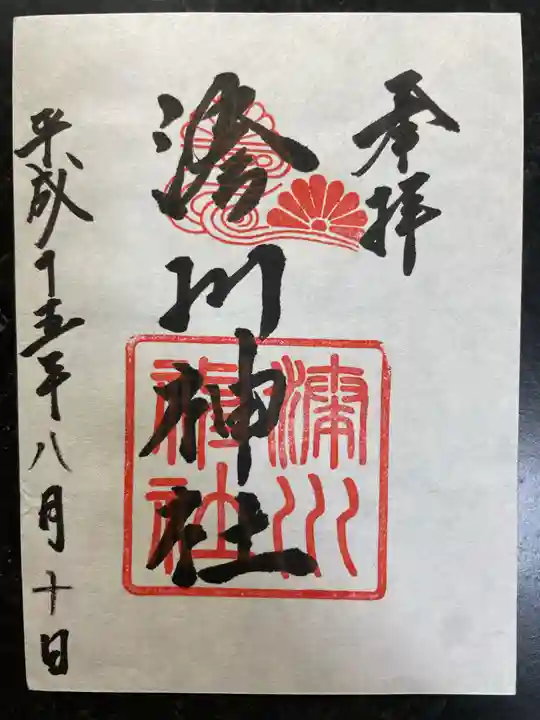 奉拝
湊川神社
平成十五年八月十日
湊川
神社